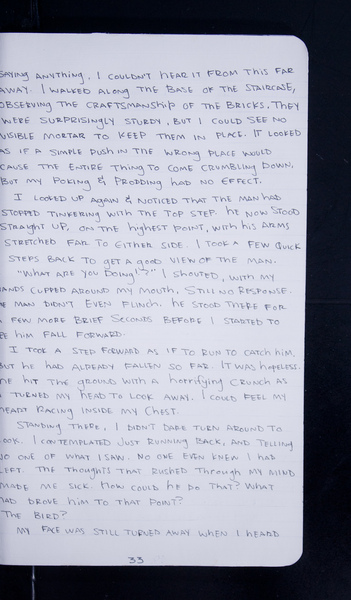 SAYING ANYTHING, I COULDN'T HEAR IT FROM THIS FAR
AWAY. I WALKED ALONG THE BASE OF THE STAIRCASE,
OBSERVING THE CRAFTSMANSHIP OF THE BRICKS. THEY
WERE SURPRISINGLY STURDY, BUT I COULD SEE NO
VISIBLE MORTAR TO KEEP THEM IN PLACE. IT LOOKED
AS IF A SIMPLE PUSH IN THE WRONG PLACE WOULD
CAUSE THE ENTIRE THING TO COME CRUMBLING DOWN.
BUT MY POKING & PRODDING HAD NO EFFECT.
I LOOKED UP AGAIN & NOTICED THAT THE MAN HAD
STOPPED TINKERING WITH THE TOP STEP. HE NOW STOOD
STRAIGHT UP, ON THE HIGHEST POINT, WITH HIS ARMS
STRETCHED FAR TO EITHER SIDE. I TOOK A FEW QUICK
STEPS BACK TO GET A GOOD VIEW OF THE MAN.
"WHAT ARE YOU DOING!?" I SHOUTED, WITH MY
HANDS CUPPED AROUND MY MOUTH. STILL NO RESPONSE.
HE MAN DIDN'T EVEN FLINCH. HE STOOD THERE FOR
A FEW MORE BRIEF SECONDS BEFORE I STARTED TO
EE HIM FALL FORWARD.
I TOOK A STEP FORWARD AS IF TO RUN TO CATCH HIM,
BUT HE HAD ALREADY FALLEN SO FAR. IT WAS HOPELESS.
HE HIT THE GROUND WITH A HORRIFYING CRUNCH AS
I TURNED MY HEAD TO LOOK AWAY. I COULD FEEL MY
HEART RACING INSIDE MY CHEST.
STANDING THERE, I DIDN'T DARE TURN AROUND TO
OOK. I CONTEMPLATED JUST RUNNING BACK, AND TELLING
NO ONE OF WHAT I SAW. NO ONE EVEN KNEW I HAD
LEFT. THE THOUGHTS THAT RUSHED THROUGH MY MIND
MADE ME SICK. HOW COULD HE DO THAT? WHAT
HAD DROVE HIM TO THAT POINT?
THE BIRD?
MY FACE WAS STILL TURNED AWAY WHEN I HEARD
33